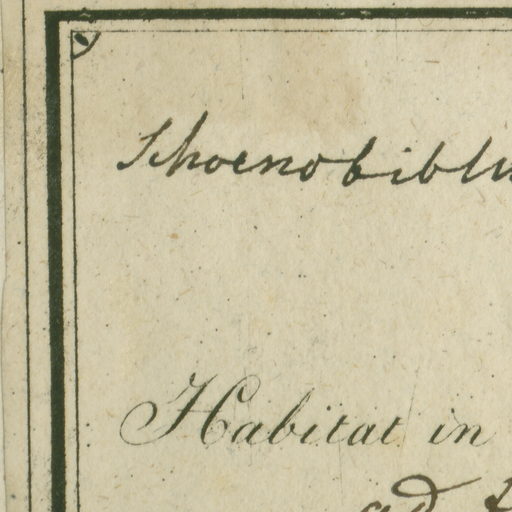 Schoenobiblu
Habitat in
ad